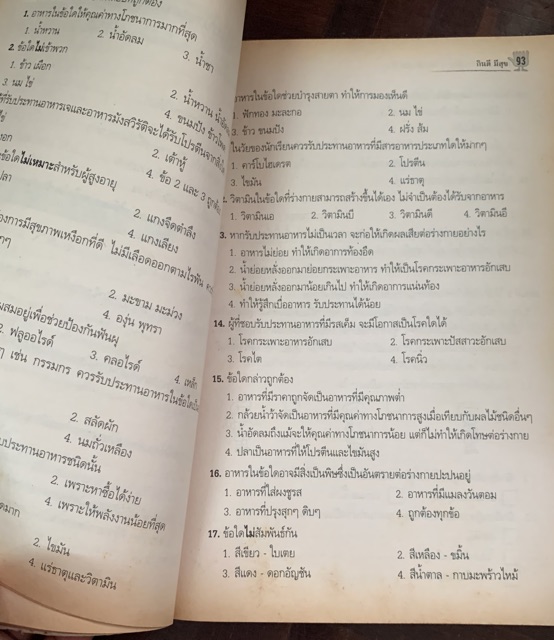 ถูกต้อง
1. อาหารในข้อใดให้คุณค่าทางโภชนาการมากที่สุด
1. น้ำหวาน 2. น้ำอัดลม 3. น้ำชา
2. ข้อใดไม่เข้าพวก
1. ข้าว เผือก 2. น้ำหวาน
3. นม ไข่ 4. ขนมปัง
ที่รับประทานอาหารเจและอาหารมังสวิรัติจะได้รับโปรตีนจาก
ไข่ 2. เต้าหู้
4. ข้อ 2 และ 3 ถูก
ข้อใดไม่เหมาะสำหรับผู้สูงอายุ
ปลา 2. แกงจืดตำลึง
4. แกงเลียง
องการมีสุขภาพเหงือกที่ดี ไม่มีเลือดออกตามไรฟัน
2. มะขาม มะม่วง
4. องุ่น พุทรา
ผสมอยู่เพื่อช่วยป้องกันฟันผุ
2. ฟลูออไรด์ 3. คลอไรด์ 4. เหล็ก
เช่น กรรมกร ควรรับประทานอาหารในข้อใด
2. สลัดผัก
4. นมถั่วเหลือง
ประทานอาหารชนิดนั้น
2. เพราะหาซื้อได้ง่าย
4. เพราะให้พลังงานน้อยที่สุด
2. ไขมัน
4. แร่ธาตุและวิตามิน
กินดี มีสุข 93
อาหารในข้อใดช่วยบำรุงสายตา ทำให้การมองเห็นดี
1. ฟักทอง มะละกอ 2. นม ไข่
3. ข้าว ขนมปัง 4. ฝรั่ง ส้ม
ในวัยของนักเรียนควรรับประทานอาหารที่มีสารอาหารประเภทใดให้มากๆ
1. คาร์โบไฮเดรต 2. โปรตีน
3. ไขมัน 4. แร่ธาตุ
วิตามินในข้อใดที่ร่างกายสามารถสร้างขึ้นได้เอง ไม่จำเป็นต้องได้รับจากอาหาร
1. วิตามินเอ 2. วิตามินบี 3. วิตามินดี 4. วิตามินอี
3. หากรับประทานอาหารไม่เป็นเวลา จะก่อให้เกิดผลเสียต่อร่างกายอย่างไร
1. อาหารไม่ย่อย ทำให้เกิดอาการท้องอืด
2. น้ำย่อยหลั่งออกมาย่อยกระเพาะอาหาร ทำให้เป็นโรคกระเพาะอาหารอักเสบ
3. น้ำย่อยหลั่งออกมาน้อยเกินไป ทำให้เกิดอาการแน่นท้อง
4. ทำให้รู้สึกเบื่ออาหาร รับประทานได้น้อย
14. ผู้ที่ชอบรับประทานอาหารที่มีรสเค็ม จะมีโอกาสเป็นโรคใดได้
1. โรคกระเพาะอาหารอักเสบ 2. โรคกระเพาะปัสสาวะอักเสบ
3. โรคไต 4. โรคนิ่ว
15. ข้อใดกล่าวถูกต้อง
1. อาหารที่มีราคาถูกจัดเป็นอาหารที่มีคุณภาพต่ำ
2. กล้วยน้ำว้าจัดเป็นอาหารที่มีคุณค่าทางโภชนาการสูงเมื่อเทียบกับผลไม้ชนิดอื่นๆ
3. น้ำอัดลมถึงแม้จะให้คุณค่าทางโภชนาการน้อย แต่ก็ไม่ทำให้เกิดโทษต่อร่างกาย
4. ปลาเป็นอาหารที่ให้โปรตีนและไขมันสูง
16. อาหารในข้อใดอาจมีสิ่งเป็นพิษซึ่งเป็นอันตรายต่อร่างกายปะปนอยู่
1. อาหารที่ใส่ผงชูรส 2. อาหารที่มีแมลงวันตอม
3. อาหารที่ปรุงสุกๆ ดิบๆ 4. ถูกต้องทุกข้อ
17. ข้อใดไม่สัมพันธ์กัน
1. สีเขียว - ใบเตย 2. สีเหลือง - ขมิ้น
3. สีแดง - ดอกอัญชัน 4. สีน้ำตาล - กาบมะพร้าวไหม้